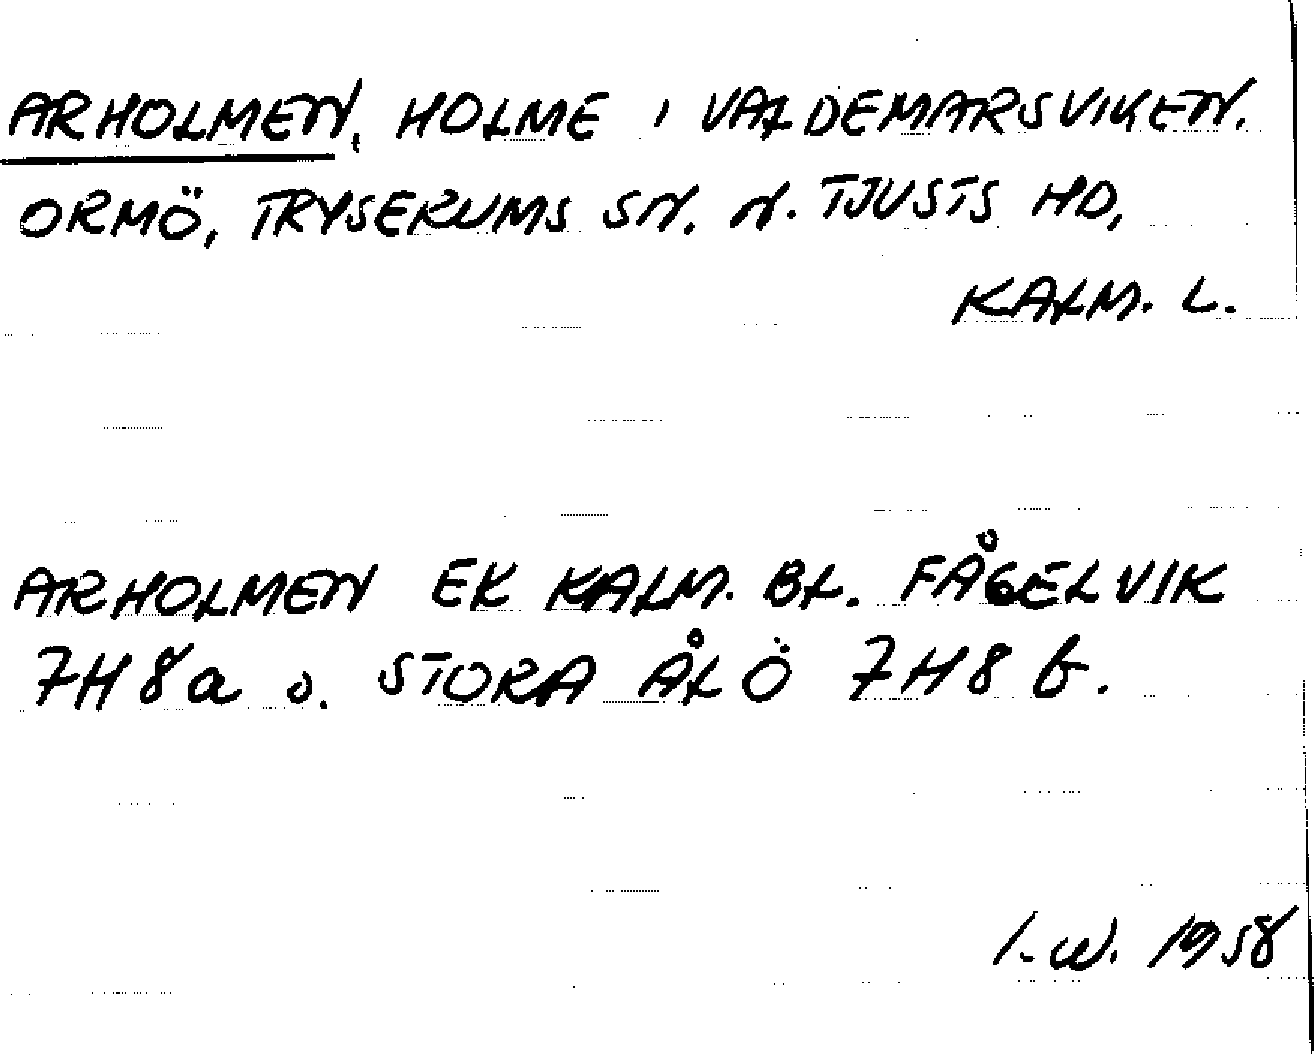 ARHOLMEN, HOLME I VALDEMARSVIKEN.
ORMÖ, TRYSERUMS SN. N. TJUSTS HD,
KALM. L.
ARHOLMEN EK KALM. BL. FÅGELVIK
7H8a o. STORA ÅLÖ 7H8 b.
I.W. 1958